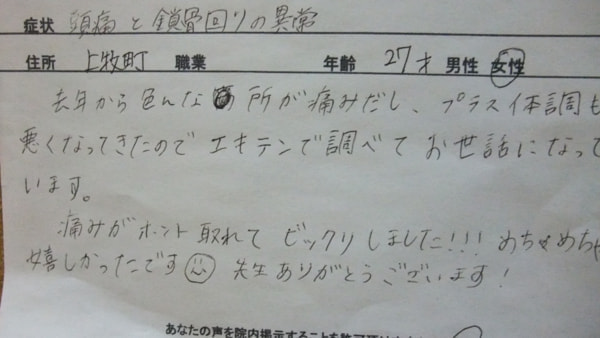 症状 頭痛と鎖骨回りの異常
住所 上牧町 職業 年齢 27才 男性 女性
去年から色んな所が痛みだし、プラス体調も
悪くなってきたのでエキテンで調べてお世話になって
います。
痛みがホント取れてビックリしました!!! めちゃめちゃ
嬉しかったです 先生ありがとうございます!
あなたの声を院内掲示することを許可